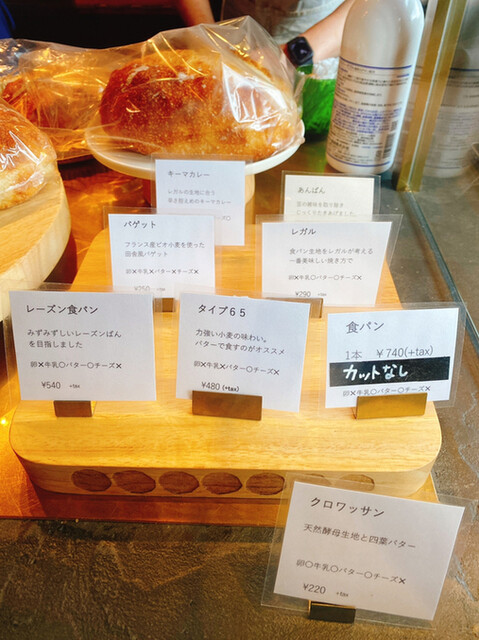 キーマカレー
レガルの生地に合う
辛さ控えめのキーマカレー
あんぱん
バゲット
フランス産ビオ小麦を使った
田舎風バゲット
卵✕牛乳✕バター✕チーズ✕
¥250
レガル
食パン生地をレガルが考える
一番美味しい焼き方で
卵✕牛乳〇バター〇チーズ✕
¥290
レーズン食パン
みずみずしいレーズンぱん
を目指しました
卵✕牛乳〇バター〇チーズ✕
¥540 +tax
タイプ65
力強い小麦の味わい。
バターで食すのがオススメ
卵✕牛乳✕バター✕チーズ✕
¥480(+tax)
食パン
1本 ¥740(+tax)
カットなし
卵✕牛乳〇バター〇チーズ✕
クロワッサン
天然酵母生地と四葉バター
卵〇牛乳〇バター〇チーズ✕
¥220 +tax